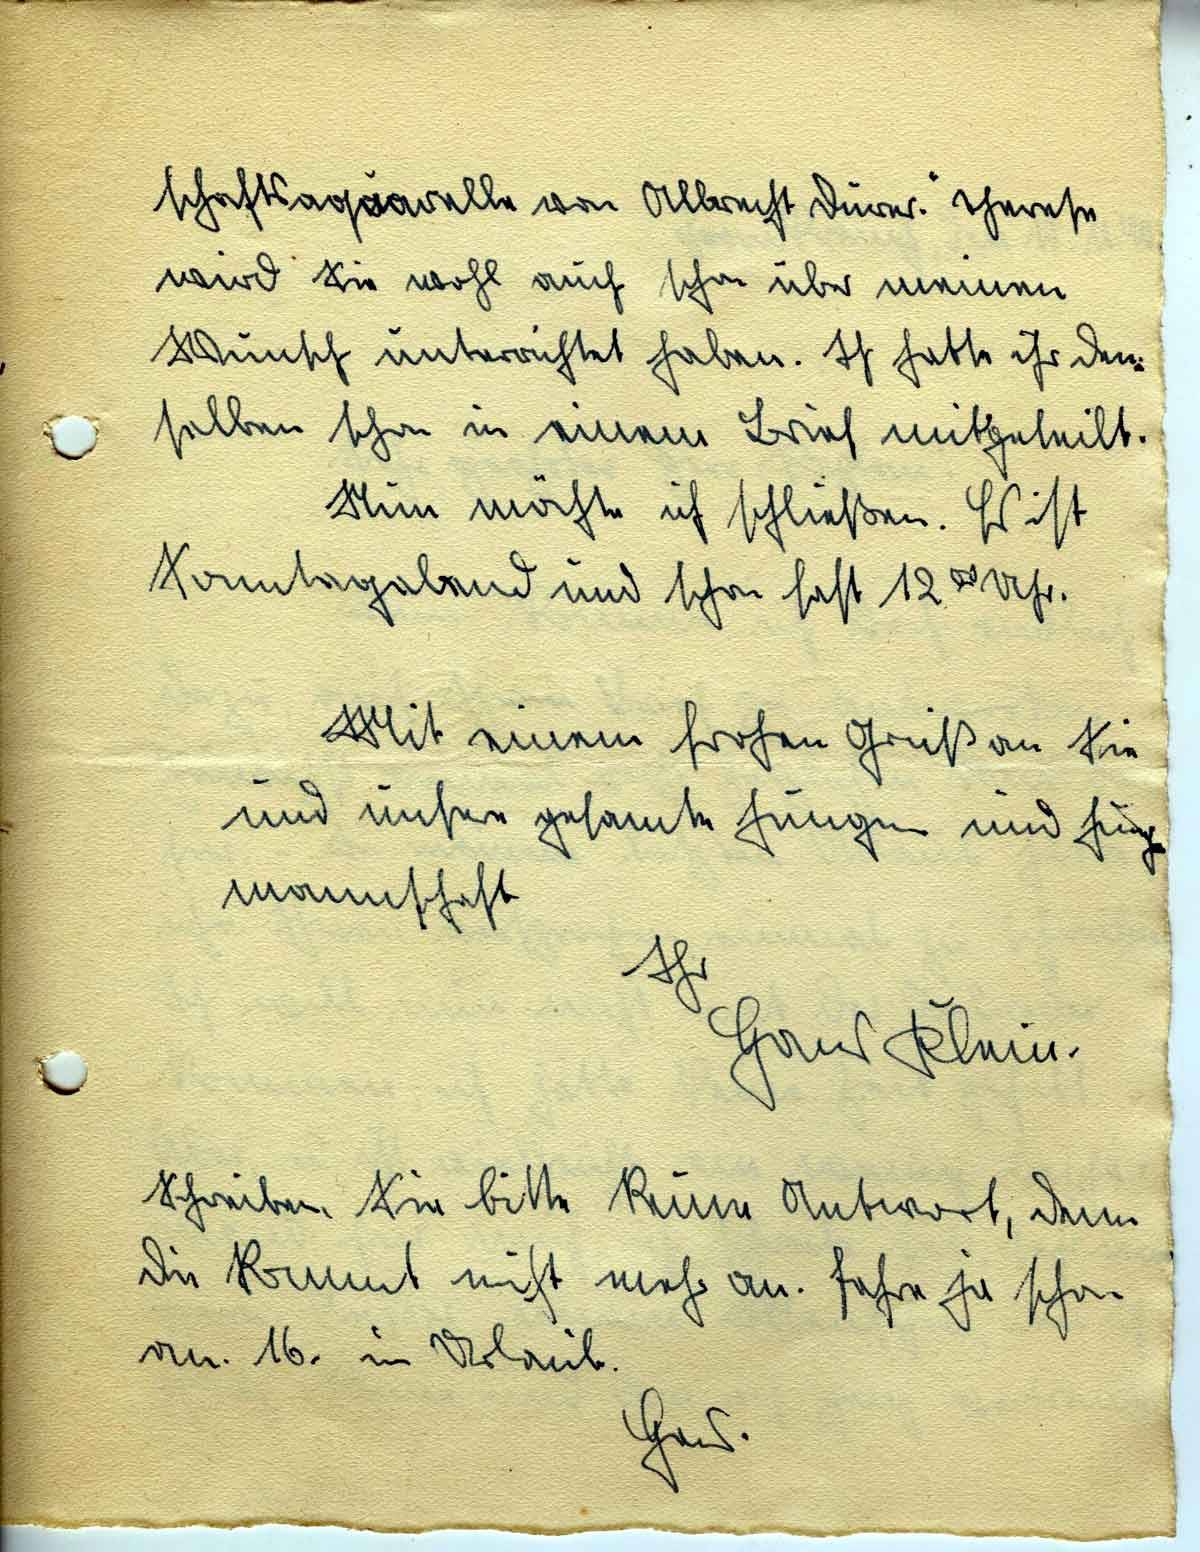 schaftsaquarelle von Albrecht Dürer." Therese
wird Sie wohl auch schon über meinen
Wunsch unterrichtet haben. Ich hatte ihr den-
selben schon in einem Brief mitgeteilt.
Nun möchte ich schließen. Es ist
Sonntagabend und schon fast 12 00 Uhr.
Mit einem frohen Gruß an Sie
und unsere gesamte Jungen und Jung-
mannschaft
Ihr
Hans Klein.
Schreiben Sie bitte keine Antwort, denn
die kommt nicht mehr an. Fahre ja schon
am 16. in Urlaub.
Hans.